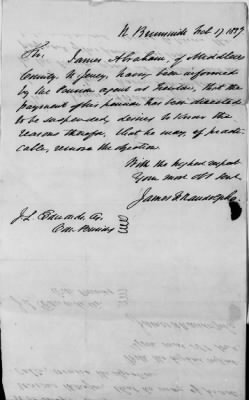 N Brunswick Feb 17 1837
Sir.
James Abraham, of Middlesex
County N Jersey, having been informed
by the Pension agent at Trenton, that the
payment of his pension has been directed
to be suspended, desires to know the
reasons therefor, that he may, if practi-
cable, remove the objection.
With the highest respect
Your most Obt Servt
James F Randolph
J L Edwards Esq
Com Pensions